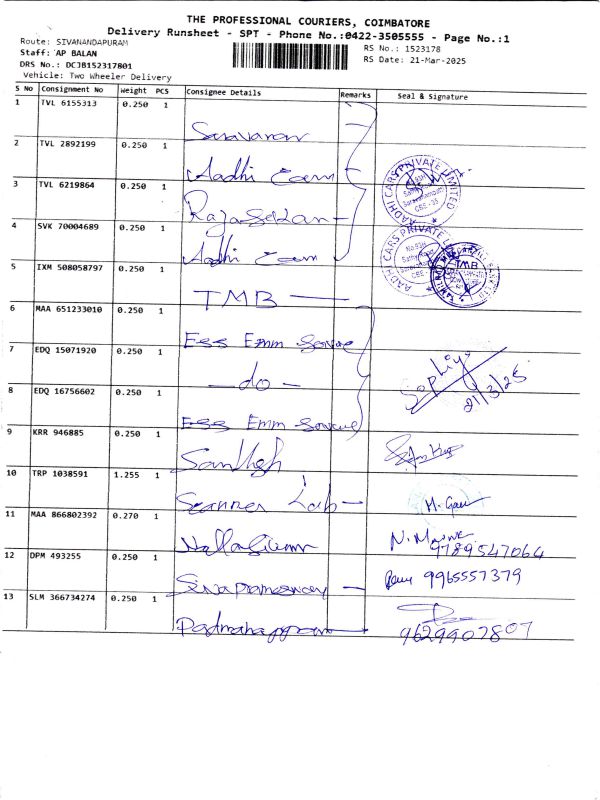 THE PROFESSIONAL COURIERS, COIMBATORE
Delivery Runsheet - SPT - Phone No.:0422-3505555 - Page No.:1
Route: SIVANANDAPURAM
RS No.: 1523178
Staff: AP BALAN
RS Date: 21-Mar-2025
DRS No.: DCJB152317801
Vehicle: Two Wheeler Delivery
S No Consignment No Weight PCS Consignee Details Remarks Seal & Signature
1 TVL 6155313 0.250 1
Saravanan
2 TVL 2892199 0.250 1
Aadhi Cam
AADHI CARS PRIVATE LIMITED
3 TVL 6219864 0.250 1
Rajasekaran
4 SVK 70004689 0.250 1
Aadhi Cam
AADHI CARS PRIVATE
5 IXM 508058797 0.250 1
TMB
TMB
6 MAA 651233010 0.250 1
Ess Emm Service
7 EDQ 15071920 0.250 1
- do -
Sophiya
21/3/25
8 EDQ 16756602 0.250 1
Ess Emm Service
9 KRR 946885 0.250 1
Santhosh
10 TRP 1038591 1.255 1
Scanner Lab
11 MAA 866802392 0.270 1
9789547064
12 DPM 493255 0.250 1
9965557379
13 SLM 366734274 0.250 1
9629907807